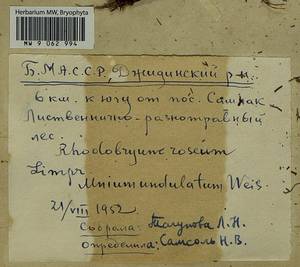 Herbarium MW, Bryophyta
MW 9 062 994
Б.М.А.С.С.Р, Джидинский р-н.
6 км. к югу от пос. Самнак
Лиственнично-разнотравный
лес.
Rhodobryum roseum
Limpr
Mnium undulatum Weis.
21/VIII 1952
Собрала: Тагунова Л.Н.
Определила: Самсоль Н.В.